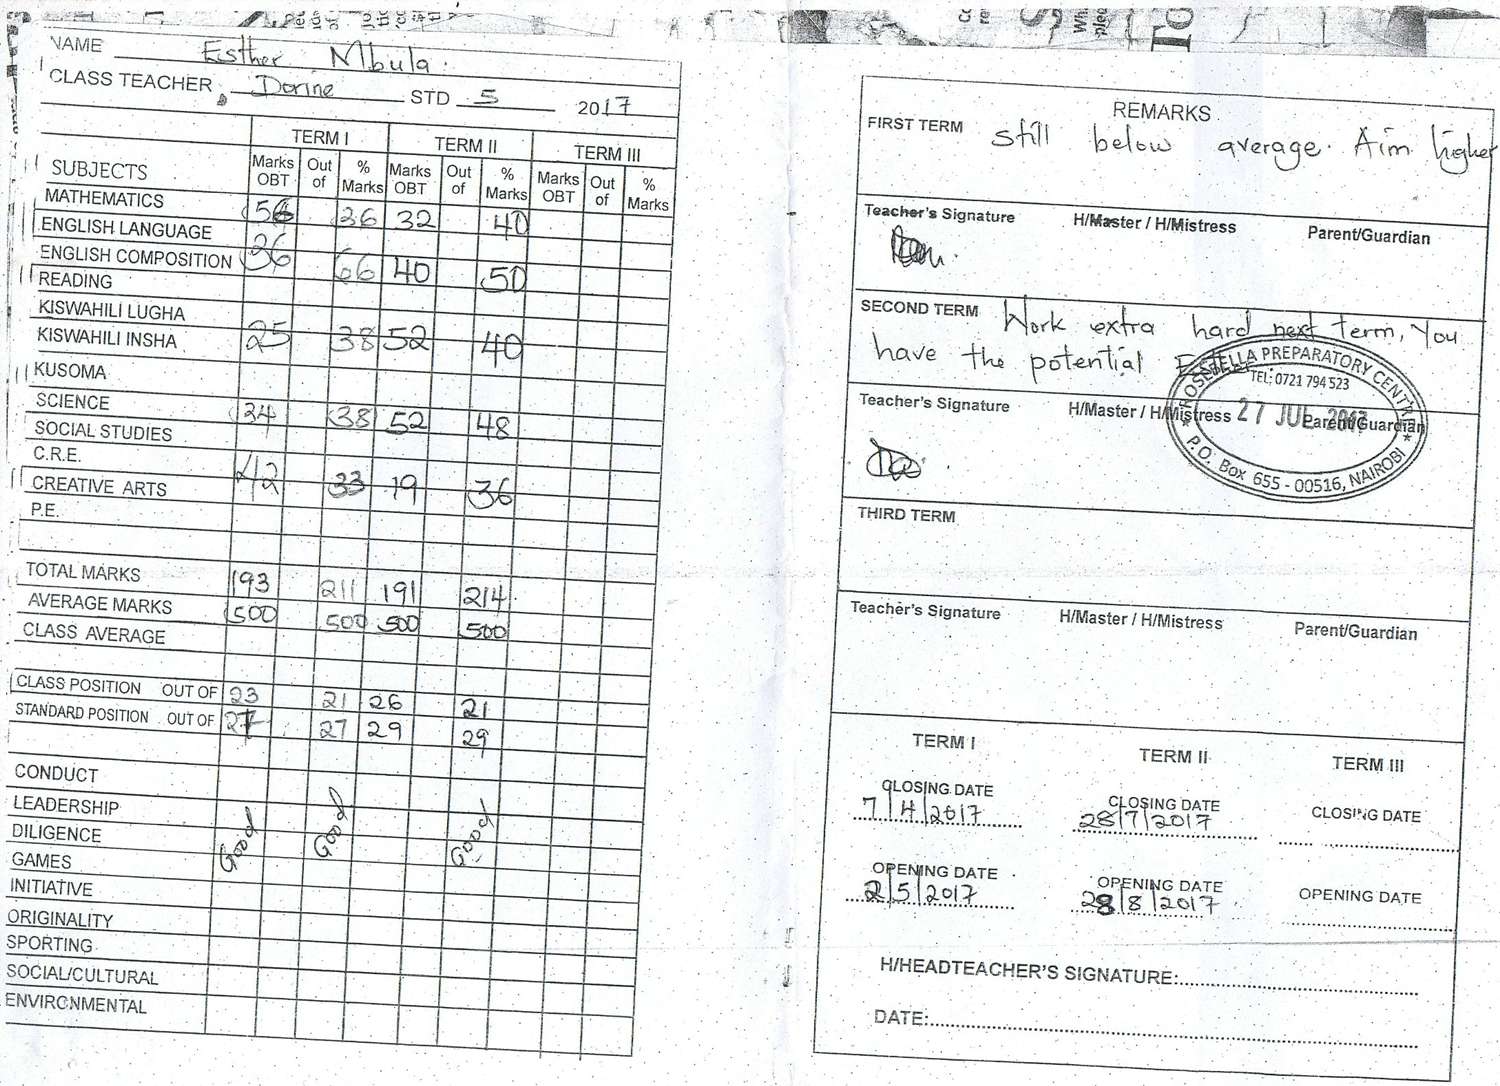 NAME Esther Mbula
CLASS TEACHER Dorine STD 5 2017
TERM I TERM II TERM III
SUBJECTS Marks OBT Out of % Marks Marks OBT Out of % Marks Marks OBT Out of % Marks
MATHEMATICS 56 36 32 40
ENGLISH LANGUAGE
ENGLISH COMPOSITION 36 66 40 50
READING
KISWAHILI LUGHA
KISWAHILI INSHA 25 38 52 40
KUSOMA
SCIENCE 34 38 52 48
SOCIAL STUDIES
C.R.E.
CREATIVE ARTS 42 33 19 36
P.E.
TOTAL MARKS 193 211 191 214
AVERAGE MARKS 500 500 500 500
CLASS AVERAGE
CLASS POSITION OUT OF 23 21 26 21
STANDARD POSITION OUT OF 27 27 29 29
CONDUCT
LEADERSHIP
DILIGENCE Good Good Good
GAMES
INITIATIVE
ORIGINALITY
SPORTING
SOCIAL/CULTURAL
ENVIRONMENTAL
REMARKS
FIRST TERM still below average. Aim higher
Teacher's Signature H/Master / H/Mistress Parent/Guardian
SECOND TERM Work extra hard next term, You
have the potential Esther.
ROSEBELLA PREPARATORY CENTRE
TEL: 0721 794 523
27 JUL 2017
P.O. Box 655 - 00516, NAIROBI
Teacher's Signature H/Master / H/Mistress Parent/Guardian
THIRD TERM
Teacher's Signature H/Master / H/Mistress Parent/Guardian
TERM I TERM II TERM III
CLOSING DATE CLOSING DATE CLOSING DATE
7/4/2017 28/7/2017
OPENING DATE OPENING DATE OPENING DATE
2/5/2017 28/8/2017
H/HEADTEACHER'S SIGNATURE:
DATE: